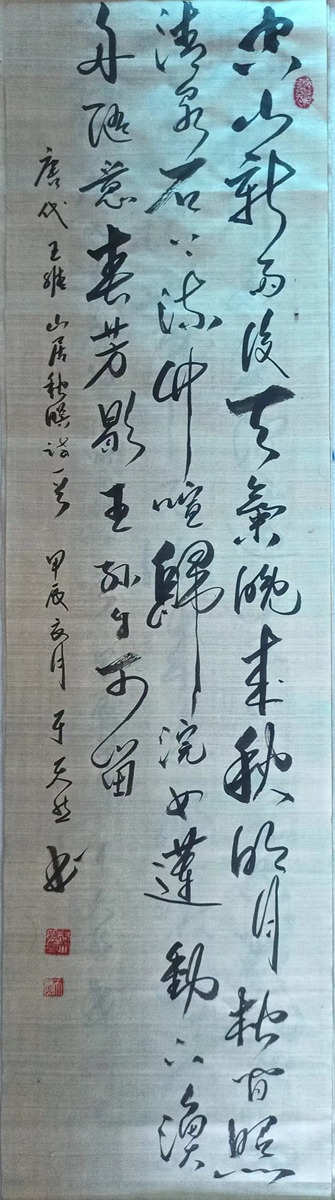 空山新雨後天氣晚來秋明月松間照
清泉石上流竹喧歸浣女蓮動下漁
舟隨意春芳歇王孫自可留
唐代王維山居秋暝詩一首 甲辰夏月 书